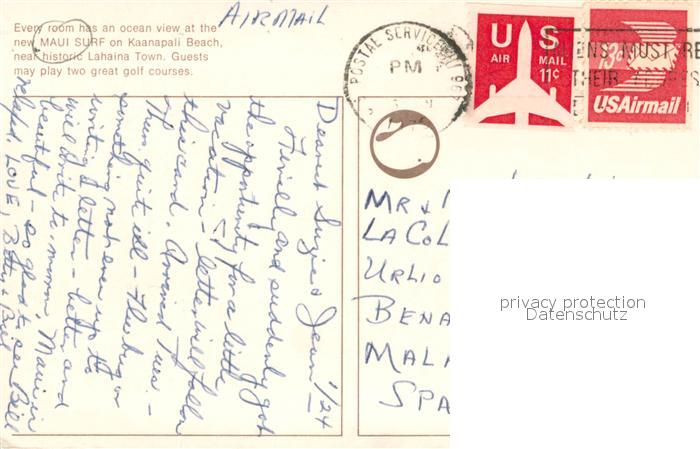 AIRMAIL
Every room has an ocean view at the
new MAUI SURF on Kaanapali Beach,
near historic Lahaina Town. Guests
may play two great golf courses.
POSTAL SERVICE
PM
US
AIR MAIL
11¢
13¢
USAirmail
ALIENS MUST RE
THEIR
1/24
Dearest Suzie & Jean
Finally and suddenly got
the opportunity for a little
vacation - letter will follow
this card. Arrived Tues. -
Then quit ill - flu bug or
something not even up to
writing a letter - better and
will write tomorrow, Maui is
beautiful - so glad to see Bill
relaxed, LOVE, Betty & Bill
MR &
LA COL
URLIO
BENA
MALA
SPA
privacy protection
Datenschutz